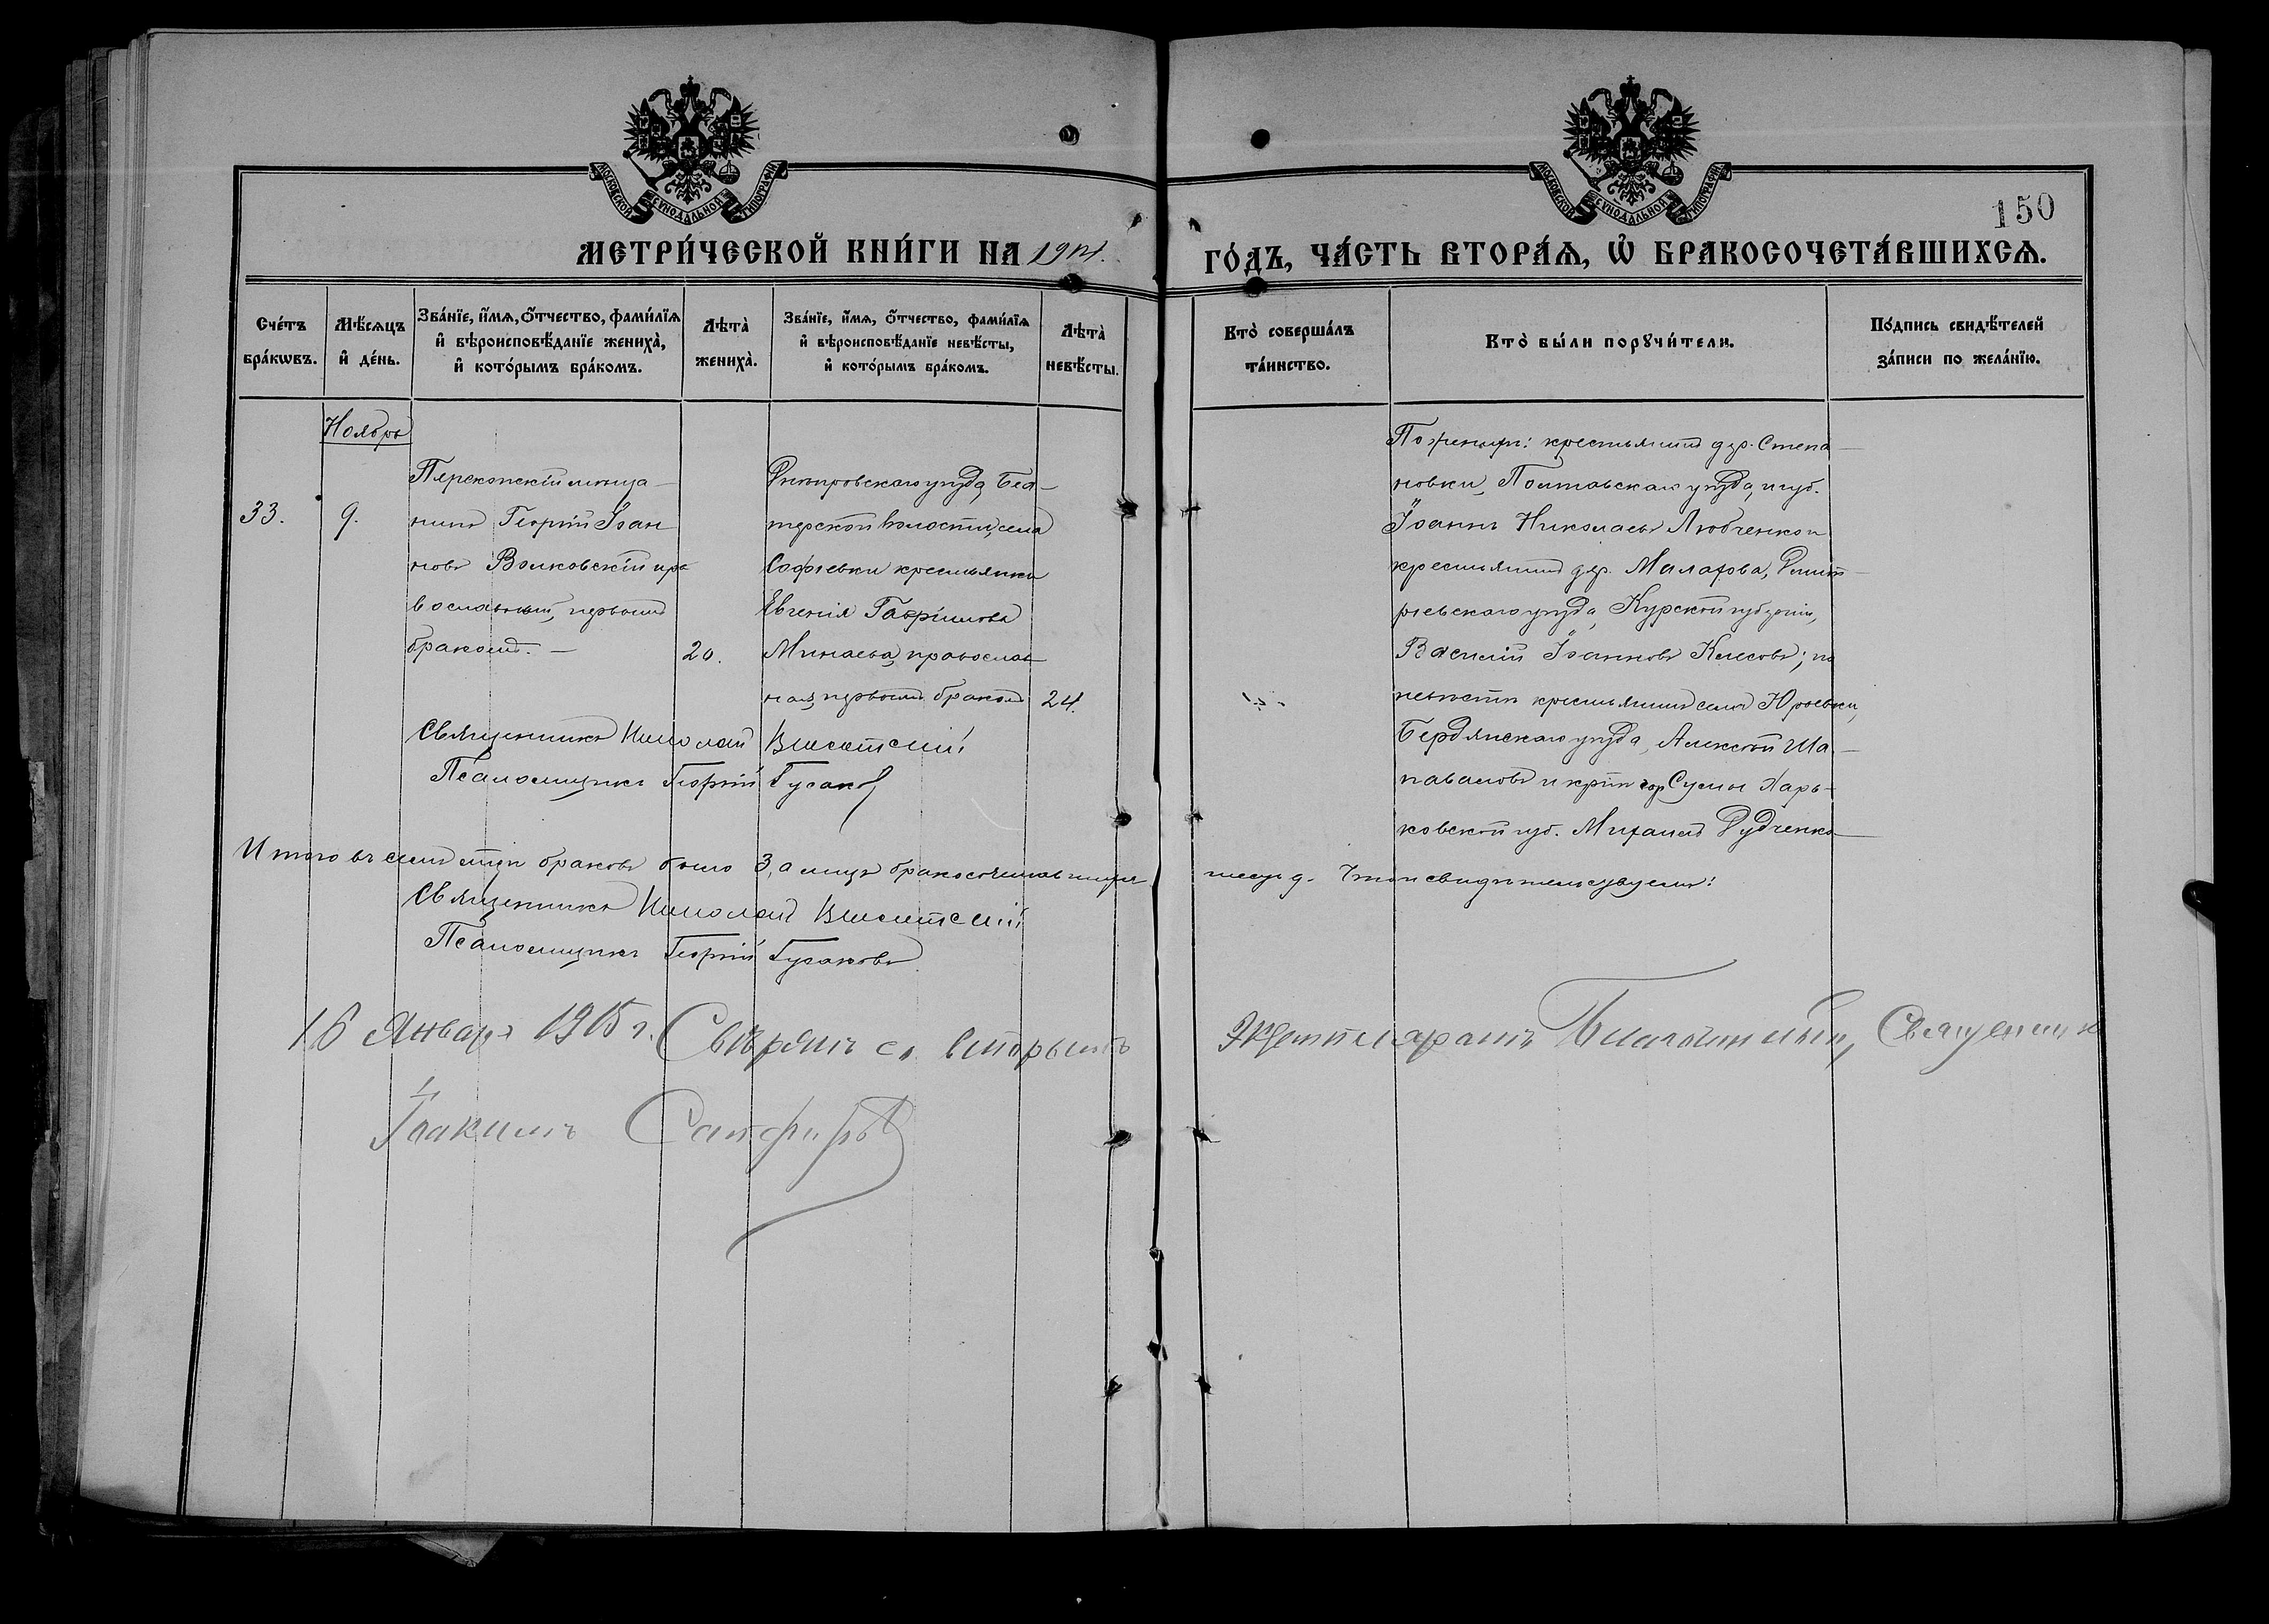 МОСКОВСКОЙ СУНОДАЛЬНОЙ ТИПОГРАФИИ
МОСКОВСКОЙ СУНОДАЛЬНОЙ ТИПОГРАФИИ
150
МЕТРИ́ЧЕСКОЙ КНИ́ГИ НА 1914. ГО́ДЪ, ЧА́СТЬ ВТОРА́Я, Ѡ҆ БРАКОСОЧЕТА́ВШИХСЯ.
Сче́тъ бра́кѡвъ.
Мѣ́сѧцъ и҆ де́нь.
Зва́нїе, и҆́мѧ, ѻ҆́тчество, фами́лїѧ
и҆ вѣроисповѣ́данїе жениха̀,
и҆ кото́рымъ бра́комъ.
Лѣта̀ жениха̀.
Зва́нїе, и҆́мѧ, ѻ҆́тчество, фами́лїѧ
и҆ вѣроисповѣ́данїе невѣ́сты,
и҆ кото́рымъ бра́комъ.
Лѣта̀ невѣ́сты.
Кто̀ соверша́лъ та́инство.
Кто̀ бы́ли порꙋчи́тели.
По́дпись свидѣ́телей за́писи по жела́нїю.
Ноябрь
33.
9.
Перекопскій мѣща-
нинъ Георгій Іоан
новъ Волковскій пра
вославный, первымъ
бракомъ. —
20.
Днѣпровскаго уѣзда, Бех-
терской волости, села
Софіевки крестьянка
Евгенія Гавріилова
Минаева, православ
ная, первымъ бракомъ
24.
По женихѣ: крестьянинъ дер. Степа-
новки, Полтавскаго уѣзда, и губ.
Іоаннъ Николаевъ Любченко и
крестьянинъ дер. Малахова, Дмит-
ріевскаго уѣзда, Курской губерніи,
Василій Іоанновъ Колесовъ; по
невѣстѣ крестьянинъ села Юрьевки,
Бердянскаго уѣзда, Алексѣй Ша-
паваловъ и крест. гор Сумы Харь-
ковской губ. Михаилъ Дудченко
Священникъ Николай
Псаломщикъ Георгій Гусаков
Итого въ семъ мѣсяцѣ браковъ было 3, а лицъ бракосочетавшихся шесть д. Въ томъ свидѣтельствуемъ:
Священникъ Николай
Псаломщикъ Георгій Гусаковъ
16 Января 1915 г. Свѣрялъ со вторымъ Экземпляромъ Благочинный, Священникъ
Іоакимъ Сапфировъ